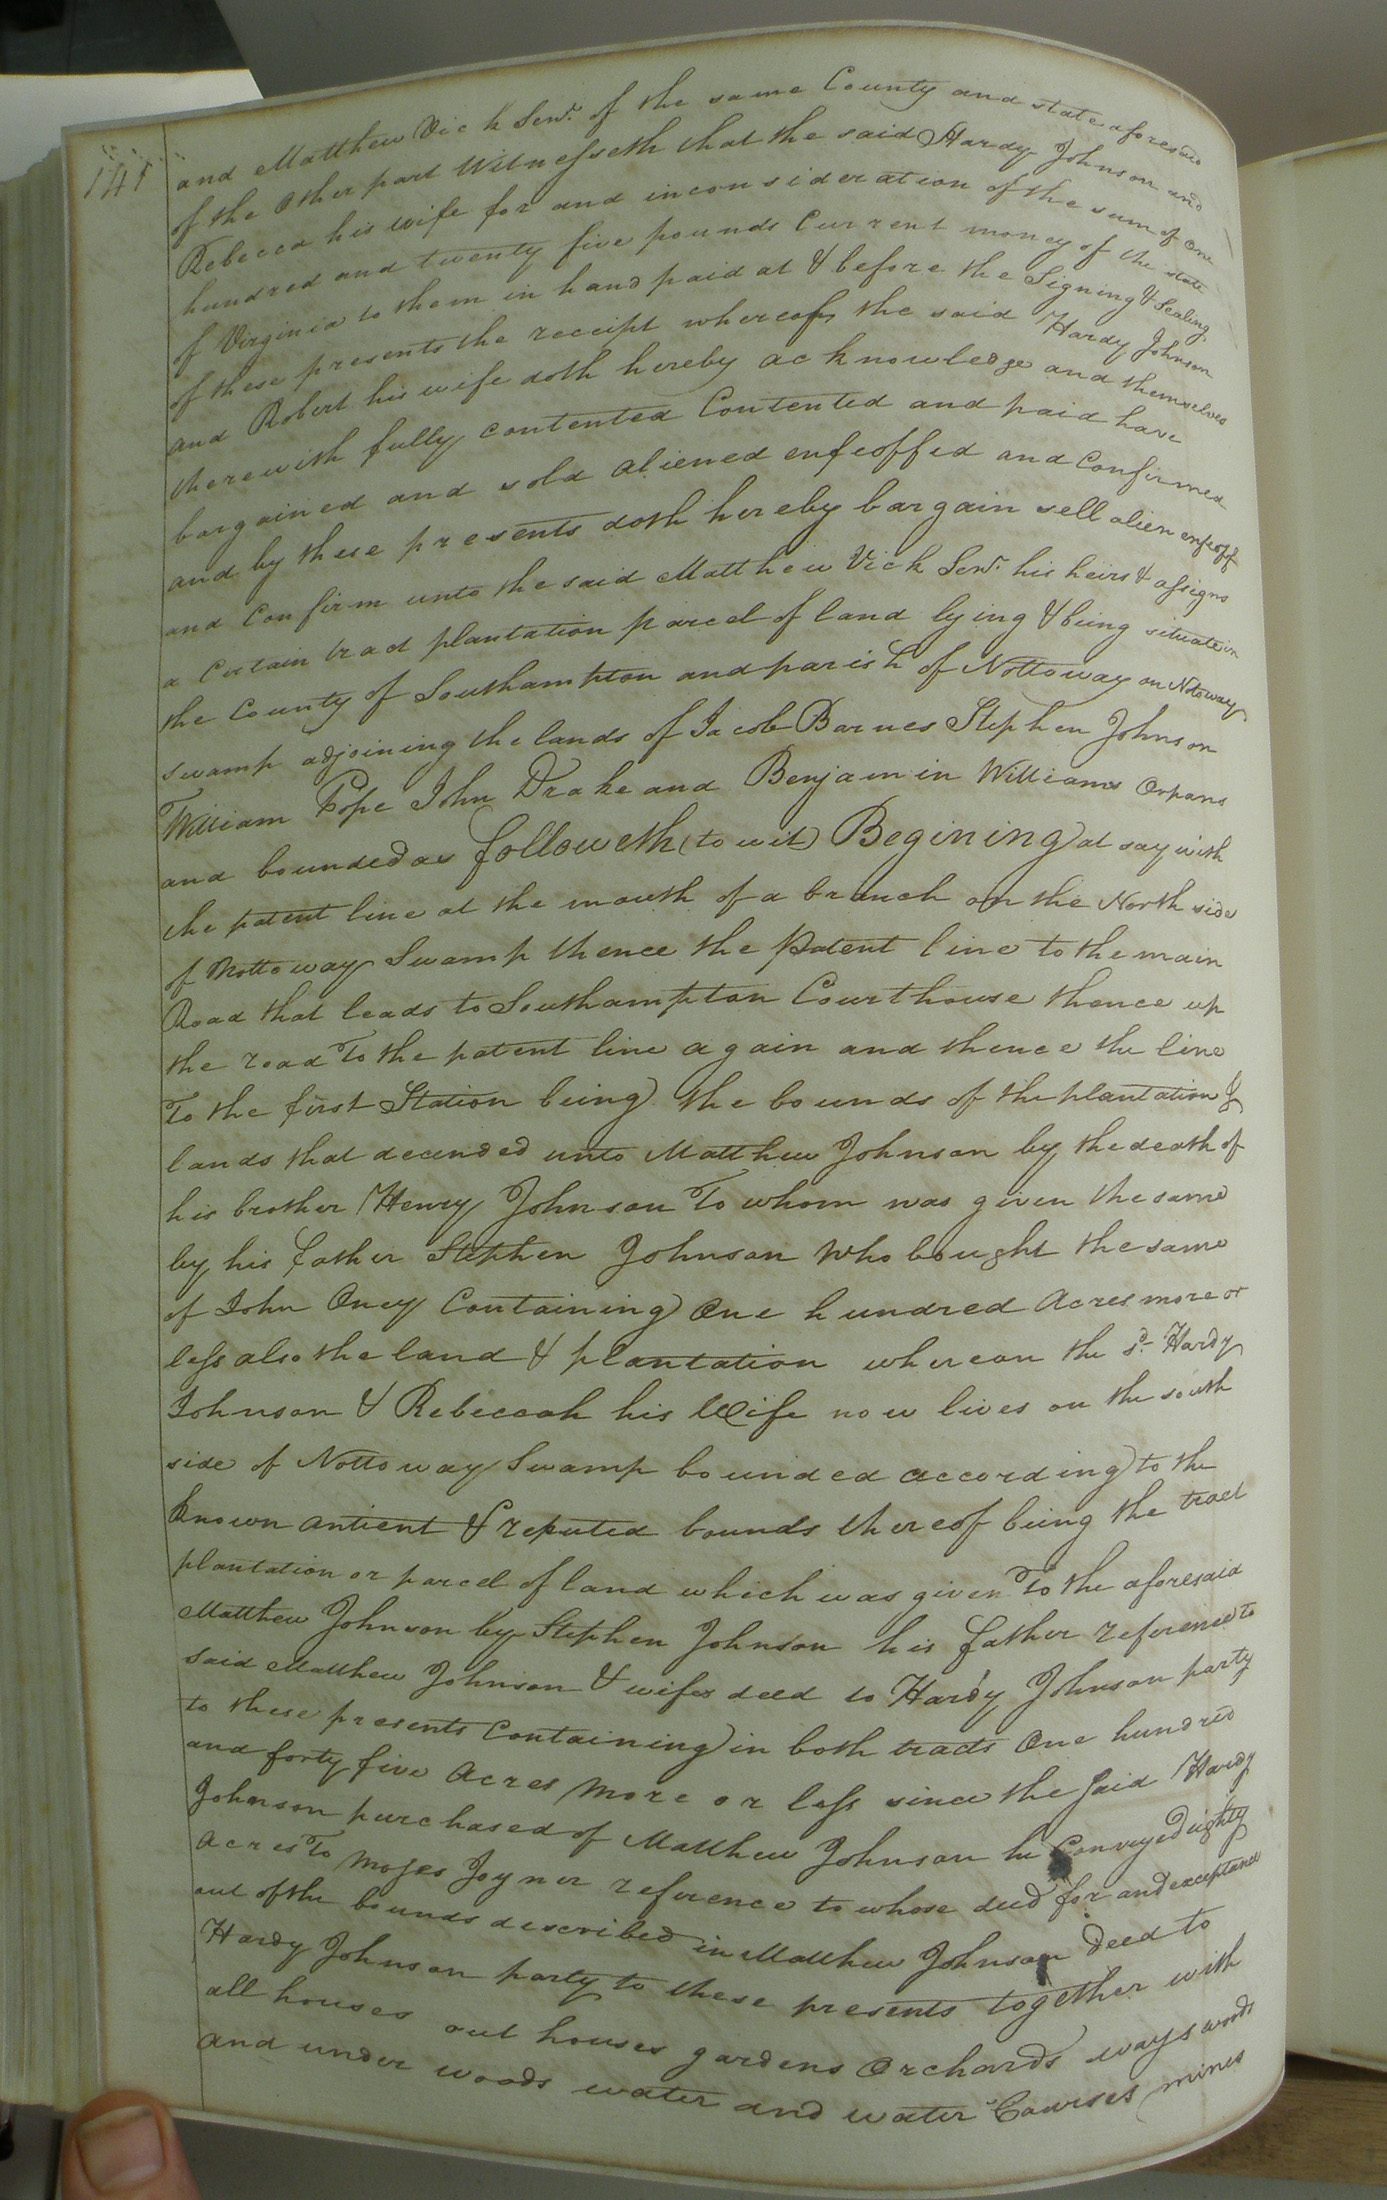 141
and Matthew Vick Senr. of the same County and state aforesaid
of the other part Witnesseth that the said Hardy Johnson and
Rebecca his wife for and inconsideration of the sum of One
hundred and twenty five pounds Current money of the state
of Virginia to them in hand paid at & before the Signing & Sealing
of these presents the receipt whereof, the said Hardy Johnson
and Robert his wife doth hereby acknowledge and themselves
therewith fully contented Contented and paid have
bargained and sold aliened enfeoffed and Confirmed
and by these presents doth hereby bargain sell alien enfeoff
and Confirm unto the said Matthew Vick Senr. his heirs & assigns
a Certain tract plantation parcel of land lying & being situate in
the County of Southampton and parish of Nottoway on Notoway
swamp adjoining the lands of Jacob Barnes Stephen Johnson
William Pope John Drake and Benjamin Williams Orpans
and bounded as followeth (to wit) Begining at say with
the patent line at the mouth of a branch on the North side
of Nottoway Swamp thence the Patent line to the main
Road that leads to Southampton Courthouse thence up
the road To the patent line again and thence the line
To the first Station being the bounds of the plantation &
lands that decended unto Matthew Johnson by the death of
his brother Henry Johnson To whom was given the same
by his father Stephen Johnson Who bought the same
of John Oney Containing One hundred Acres more or
less also the land & plantation whereon the sd. Hardy
Johnson & Rebeccah his Wife now lives on the south
side of Nottoway Swamp bounded according to the
known antient & reputed bounds thereof being the tract
plantation or parcel of land which was given To the aforesaid
Matthew Johnson by Stephen Johnson his father reference to
said Matthew Johnson & wifes deed to Hardy Johnson party
to these presents Containing in both tracts One hundred
and forty five Acres More or less since the said Hardy
Johnson purchased of Matthew Johnson he Conveyed eighty
Acres To Moses Joyner reference to whose deed for and exceptance
out of the bounds described in Matthew Johnson deed to
Hardy Johnson party to these presents together with
all houses out houses gardens Orchards ways woods
and under woods water and water Courses mines